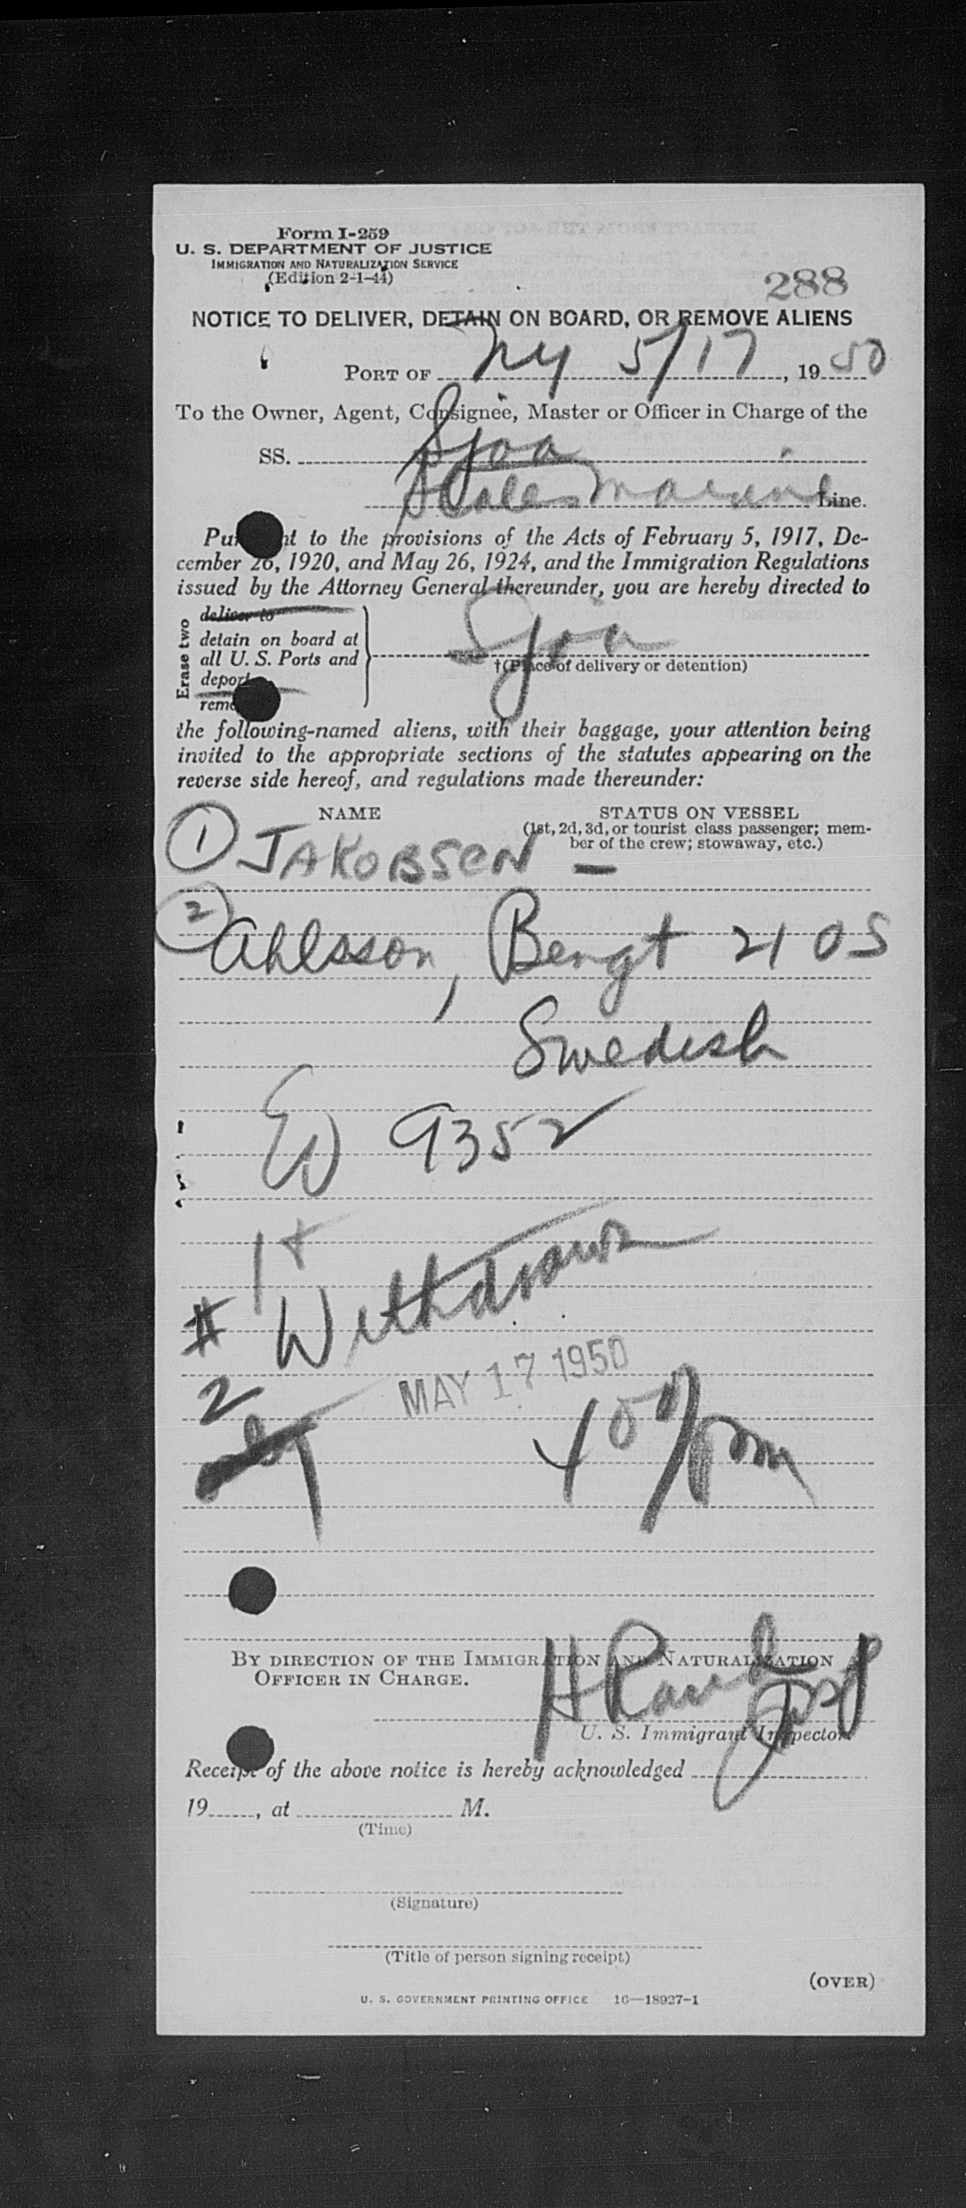 Form I-259
U. S. DEPARTMENT OF JUSTICE
IMMIGRATION AND NATURALIZATION SERVICE
(Edition 2-1-44)
288
NOTICE TO DELIVER, DETAIN ON BOARD, OR REMOVE ALIENS
PORT OF NY 5/17, 1950
To the Owner, Agent, Consignee, Master or Officer in Charge of the
SS. Sjoa
States Marine Line.
Pu nt to the provisions of the Acts of February 5, 1917, De-
cember 26, 1920, and May 26, 1924, and the Immigration Regulations
issued by the Attorney General thereunder, you are hereby directed to
Erase two
deliver to
detain on board at
all U. S. Ports and
deport
rem
Sjoa
†(Place of delivery or detention)
the following-named aliens, with their baggage, your attention being
invited to the appropriate sections of the statutes appearing on the
reverse side hereof, and regulations made thereunder:
NAME STATUS ON VESSEL
(1st, 2d, 3d, or tourist class passenger; mem-
ber of the crew; stowaway, etc.)
1 JAKOBSEN —
2 Ahlsson, Bengt 21 OS
Swedish
9352
# 1 +
Withdrawn
2
MAY 17 1950
4 00 pm
BY DIRECTION OF THE IMMIGRATION AND NATURALIZATION
OFFICER IN CHARGE.
U. S. Immigrant Inspector
Receipt of the above notice is hereby acknowledged
19, at M.
(Time)
(Signature)
(Title of person signing receipt)
(OVER)
U. S. GOVERNMENT PRINTING OFFICE 16—18927-1